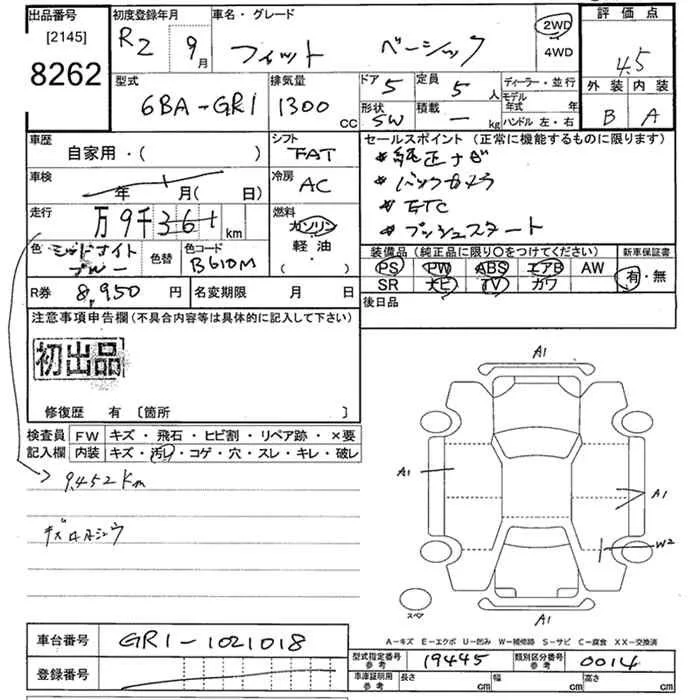 出品番号 初度登録年月 車名・グレード 評価点
[2145] R2 9月 フィット ベーシック 2WD 4WD 4.5
8262
型式 排気量 ドア 5 定員 5人 ディーラー・並行 外装 内装
6BA-GR1 1300 CC 形状 SW 積載 - kg モデル年式 年 B A
ハンドル 左・右
車歴 シフト セールスポイント (正常に機能するものに限ります)
自家用・( ) FAT *純正ナビ
車検 冷房 *バックカメラ
年 月( 日) AC *ETC
走行 燃料 *プッシュスタート
万9千361km ガソリン
軽油・
( )
色 ミッドナイトブルー 色替 色コード B610M
装備品 (純正品に限り〇をつけてください) 新車保証書
PS PW ABS エアB AW 有・無
SR ナビ TV カワ
R券 8,950円 名変期限 月 日 後日品
注意事項申告欄(不具合内容等は具体的に記入して下さい)
初出品
修復歴 有 [箇所 ]
検査員 FW キズ・飛石・ヒビ割・リペア跡・×要
記入欄 内装 キズ・汚レ・コゲ・穴・スレ・キレ・破レ
9,452km
A1
A1
A1
W2
スペア
A1
A-キズ E-エクボ U-凹み W-補修跡 S-サビ C-腐食 XX-交換済
車台番号 GR1-1021018
型式指定番号 参考 19445 類別区分番号 参考 0014
登録番号
車庫証明用 参考 長さ cm 幅 cm 高さ cm